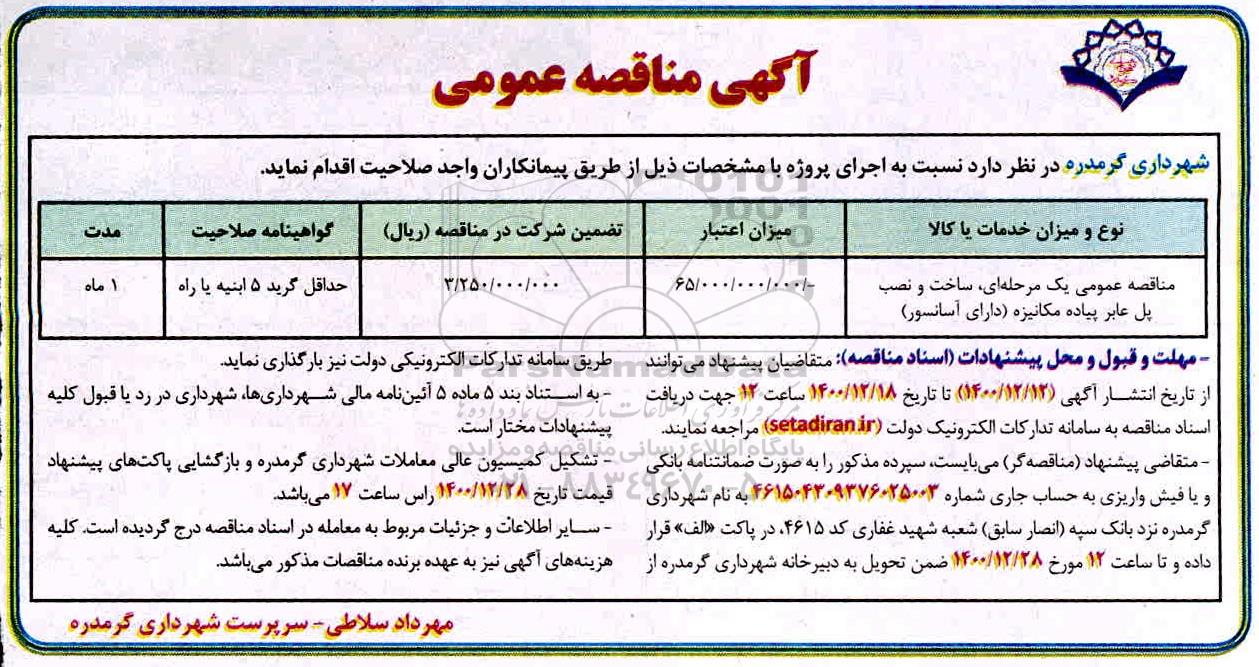 آگهی مناقصه عمومی
شهرداری گرمدره در نظر دارد نسبت به اجرای پروژه با مشخصات ذیل از طریق پیمانکاران واجد صلاحیت اقدام نماید.
نوع و میزان خدمات یا کالا
میزان اعتبار
تضمین شرکت در مناقصه (ریال)
گواهینامه صلاحیت
مدت
مناقصه عمومی یک مرحله‌ای، ساخت و نصب
پل عابر پیاده مکانیزه (دارای آسانسور)
۶۵/۰۰۰/۰۰۰/۰۰۰/-
۳/۲۵۰/۰۰۰/۰۰۰
حداقل گرید ۵ ابنیه یا راه
۱ ماه
- مهلت و قبول و محل پیشنهادات (اسناد مناقصه): متقاضیان پیشنهاد می‌توانند
از تاریخ انتشار آگهی (۱۴۰۰/۱۲/۱۲) تا تاریخ ۱۴۰۰/۱۲/۱۸ ساعت ۱۲ جهت دریافت
اسناد مناقصه به سامانه تدارکات الکترونیک دولت (setadiran.ir) مراجعه نمایند.
- متقاضی پیشنهاد (مناقصه‌گر) می‌بایست، سپرده مذکور را به صورت ضمانتنامه بانکی
و یا فیش واریزی به حساب جاری شماره ۴۶۱۵۰۴۳۰۹۳۷۶۰۲۵۰۰۳ به نام شهرداری
گرمدره نزد بانک سپه (انصار سابق) شعبه شهید غفاری کد ۴۶۱۵، در پاکت «الف» قرار
داده و تا ساعت ۱۲ مورخ ۱۴۰۰/۱۲/۲۸ ضمن تحویل به دبیرخانه شهرداری گرمدره از
طریق سامانه تدارکات الکترونیکی دولت نیز بارگذاری نماید.
- به استناد بند ۵ ماده ۵ آئین‌نامه مالی شهرداری‌ها، شهرداری در رد یا قبول کلیه
پیشنهادات مختار است.
- تشکیل کمیسیون عالی معاملات شهرداری گرمدره و بازگشایی پاکت‌های پیشنهاد
قیمت تاریخ ۱۴۰۰/۱۲/۲۸ راس ساعت ۱۷ می‌باشد.
- سایر اطلاعات و جزئیات مربوط به معامله در اسناد مناقصه درج گردیده است. کلیه
هزینه‌های آگهی نیز به عهده برنده مناقصات مذکور می‌باشد.
مهرداد سلاطی- سرپرست شهرداری گرمدره
ParsNamadData
پایگاه اطلاع رسانی مناقصه و مزایده
۰۲۱-۸۸۳۴۹۶۷۰-۵